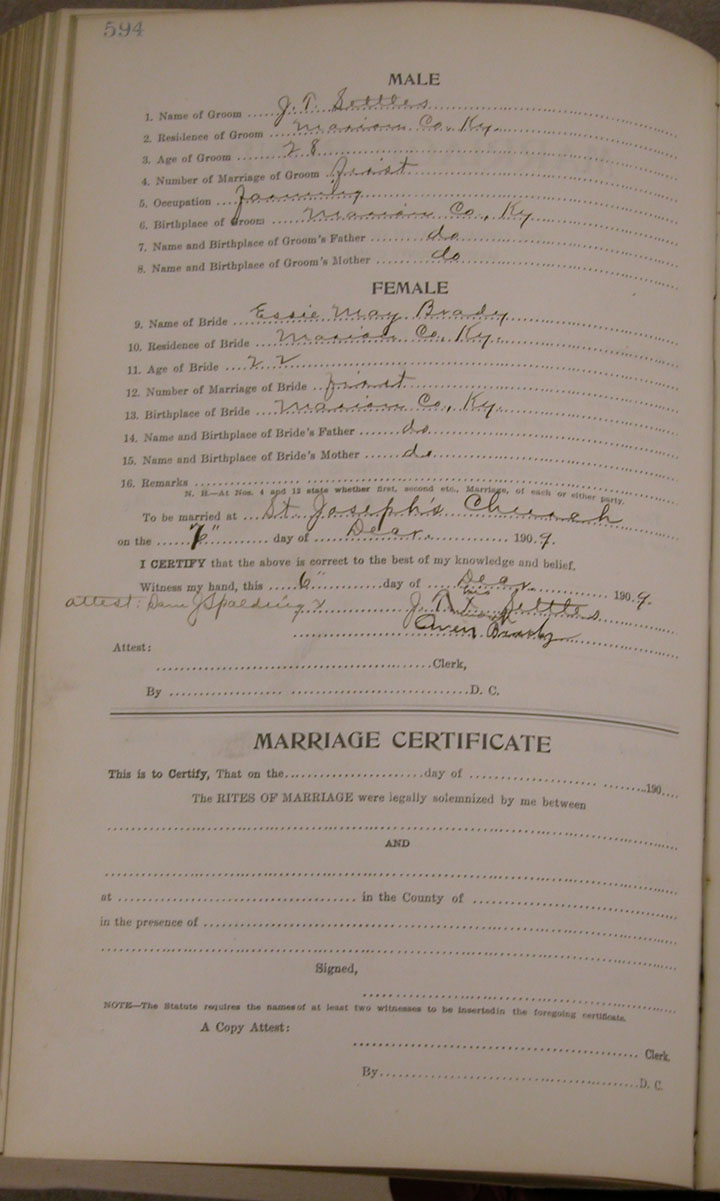 594
MALE
1. Name of Groom J. T. Settles
2. Residence of Groom Marion Co. Ky.
3. Age of Groom 28
4. Number of Marriage of Groom first
5. Occupation farming
6. Birthplace of Groom Marion Co., Ky
7. Name and Birthplace of Groom's Father do
8. Name and Birthplace of Groom's Mother do
FEMALE
9. Name of Bride Essie May Brady
10. Residence of Bride Marion Co, Ky.
11. Age of Bride 22
12. Number of Marriage of Bride first
13. Birthplace of Bride Marion Co, Ky.
14. Name and Birthplace of Bride's Father do
15. Name and Birthplace of Bride's Mother do
16. Remarks
N. B.—At Nos. 4 and 12 state whether first, second etc., Marriage, of each or either party.
To be married at St. Joseph's Church
on the day of 190 9.
I CERTIFY that the above is correct to the best of my knowledge and belief.
Witness my hand, this 6" day of 190 9.
attest: Spalding J. T. his x mark Settles
Brady
Attest:
Clerk,
By D. C.
MARRIAGE CERTIFICATE
This is to Certify, That on the day of 190
The RITES OF MARRIAGE were legally solemnized by me between
AND
at in the County of
in the presence of
Signed,
NOTE—The Statute requires the names of at least two witnesses to be inserted in the foregoing certificate.
A Copy Attest:
Clerk.
By D. C.